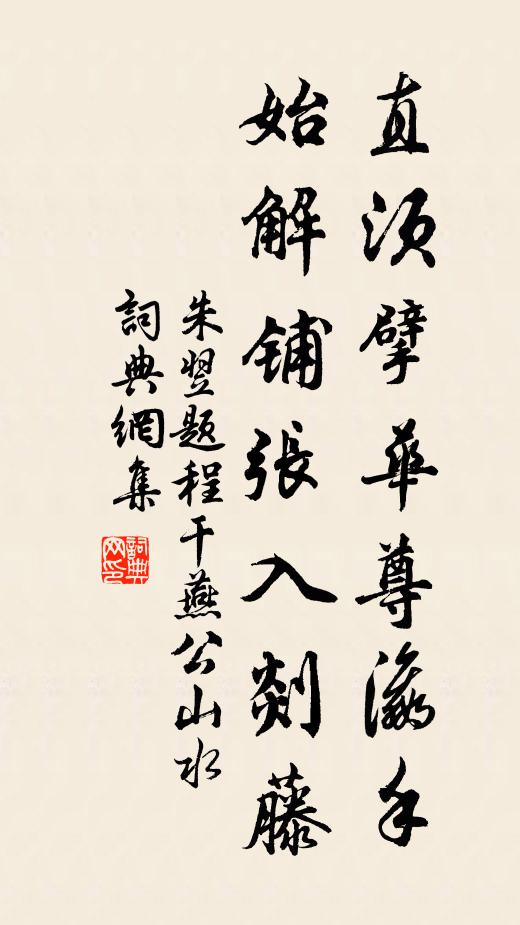 直須擘華尊瀛手
始解鋪張入剡藤
朱翌題程干燕公山水
詞典網集
詞典網印